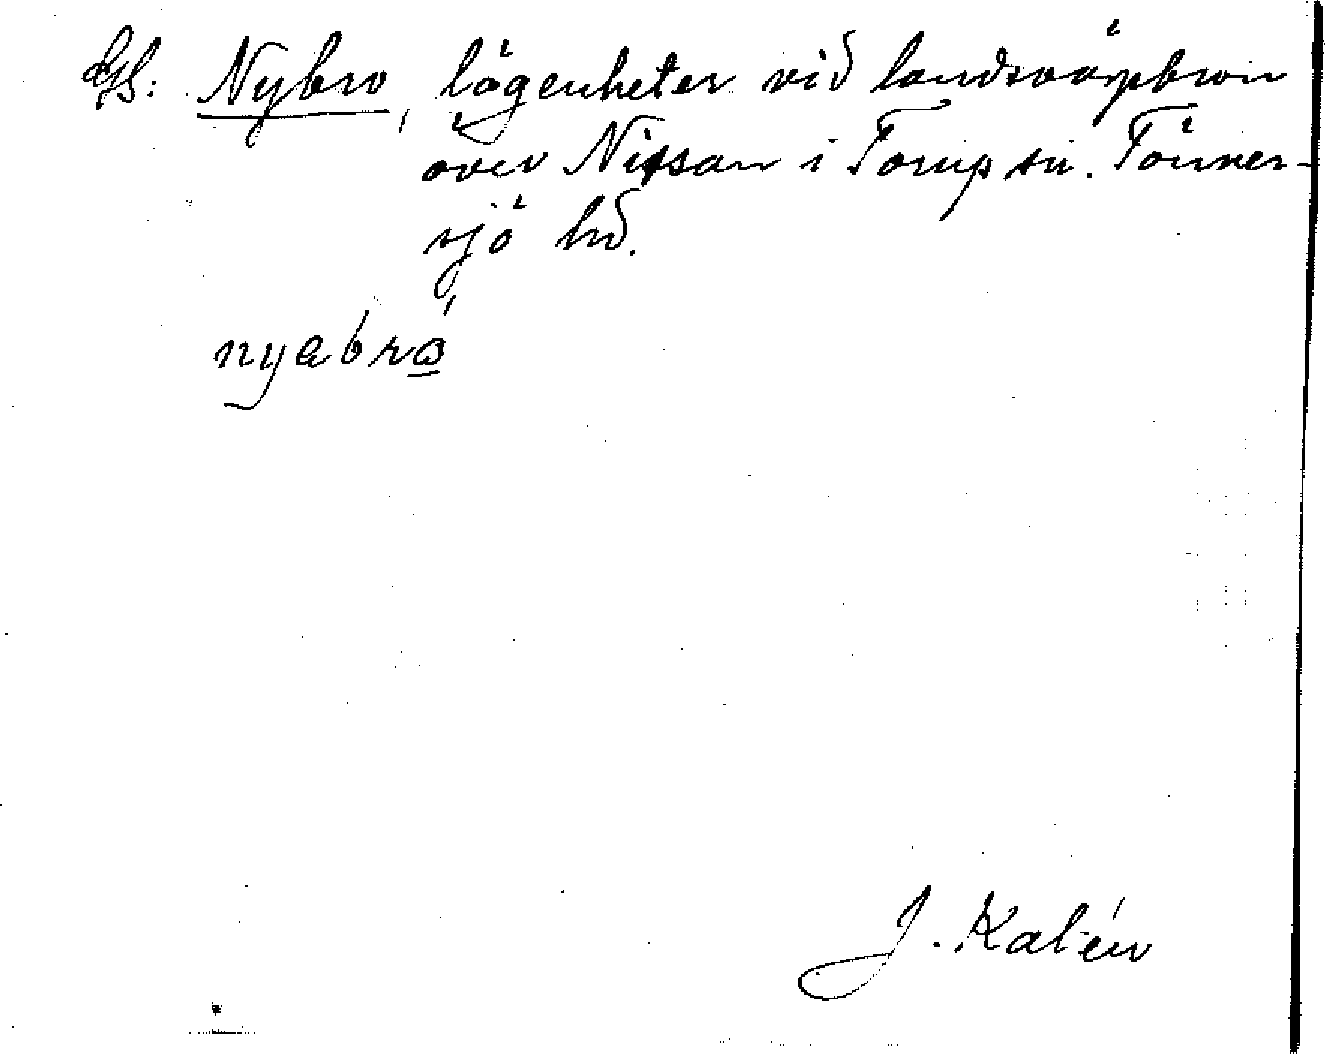 Gs: Nybro, lägenheter vid landsvägsbron
över Nissan i Torup sn. Tönner-
sjö hd.
nyabro
J. Kalén